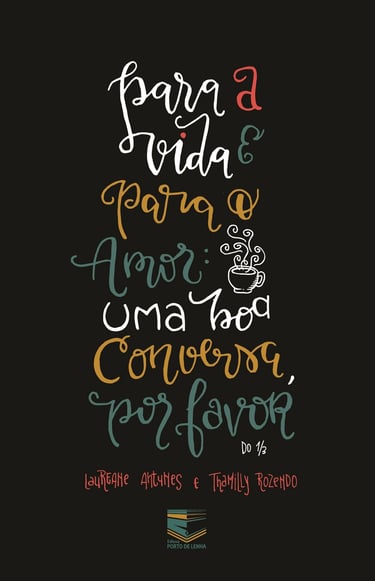 para a
vida e
para o
Amor:
uma boa
Conversa,
por favor
DO 1/3
Laureane Antunes e Thamilly Rozendo
Editora
PORTO DE LENHA